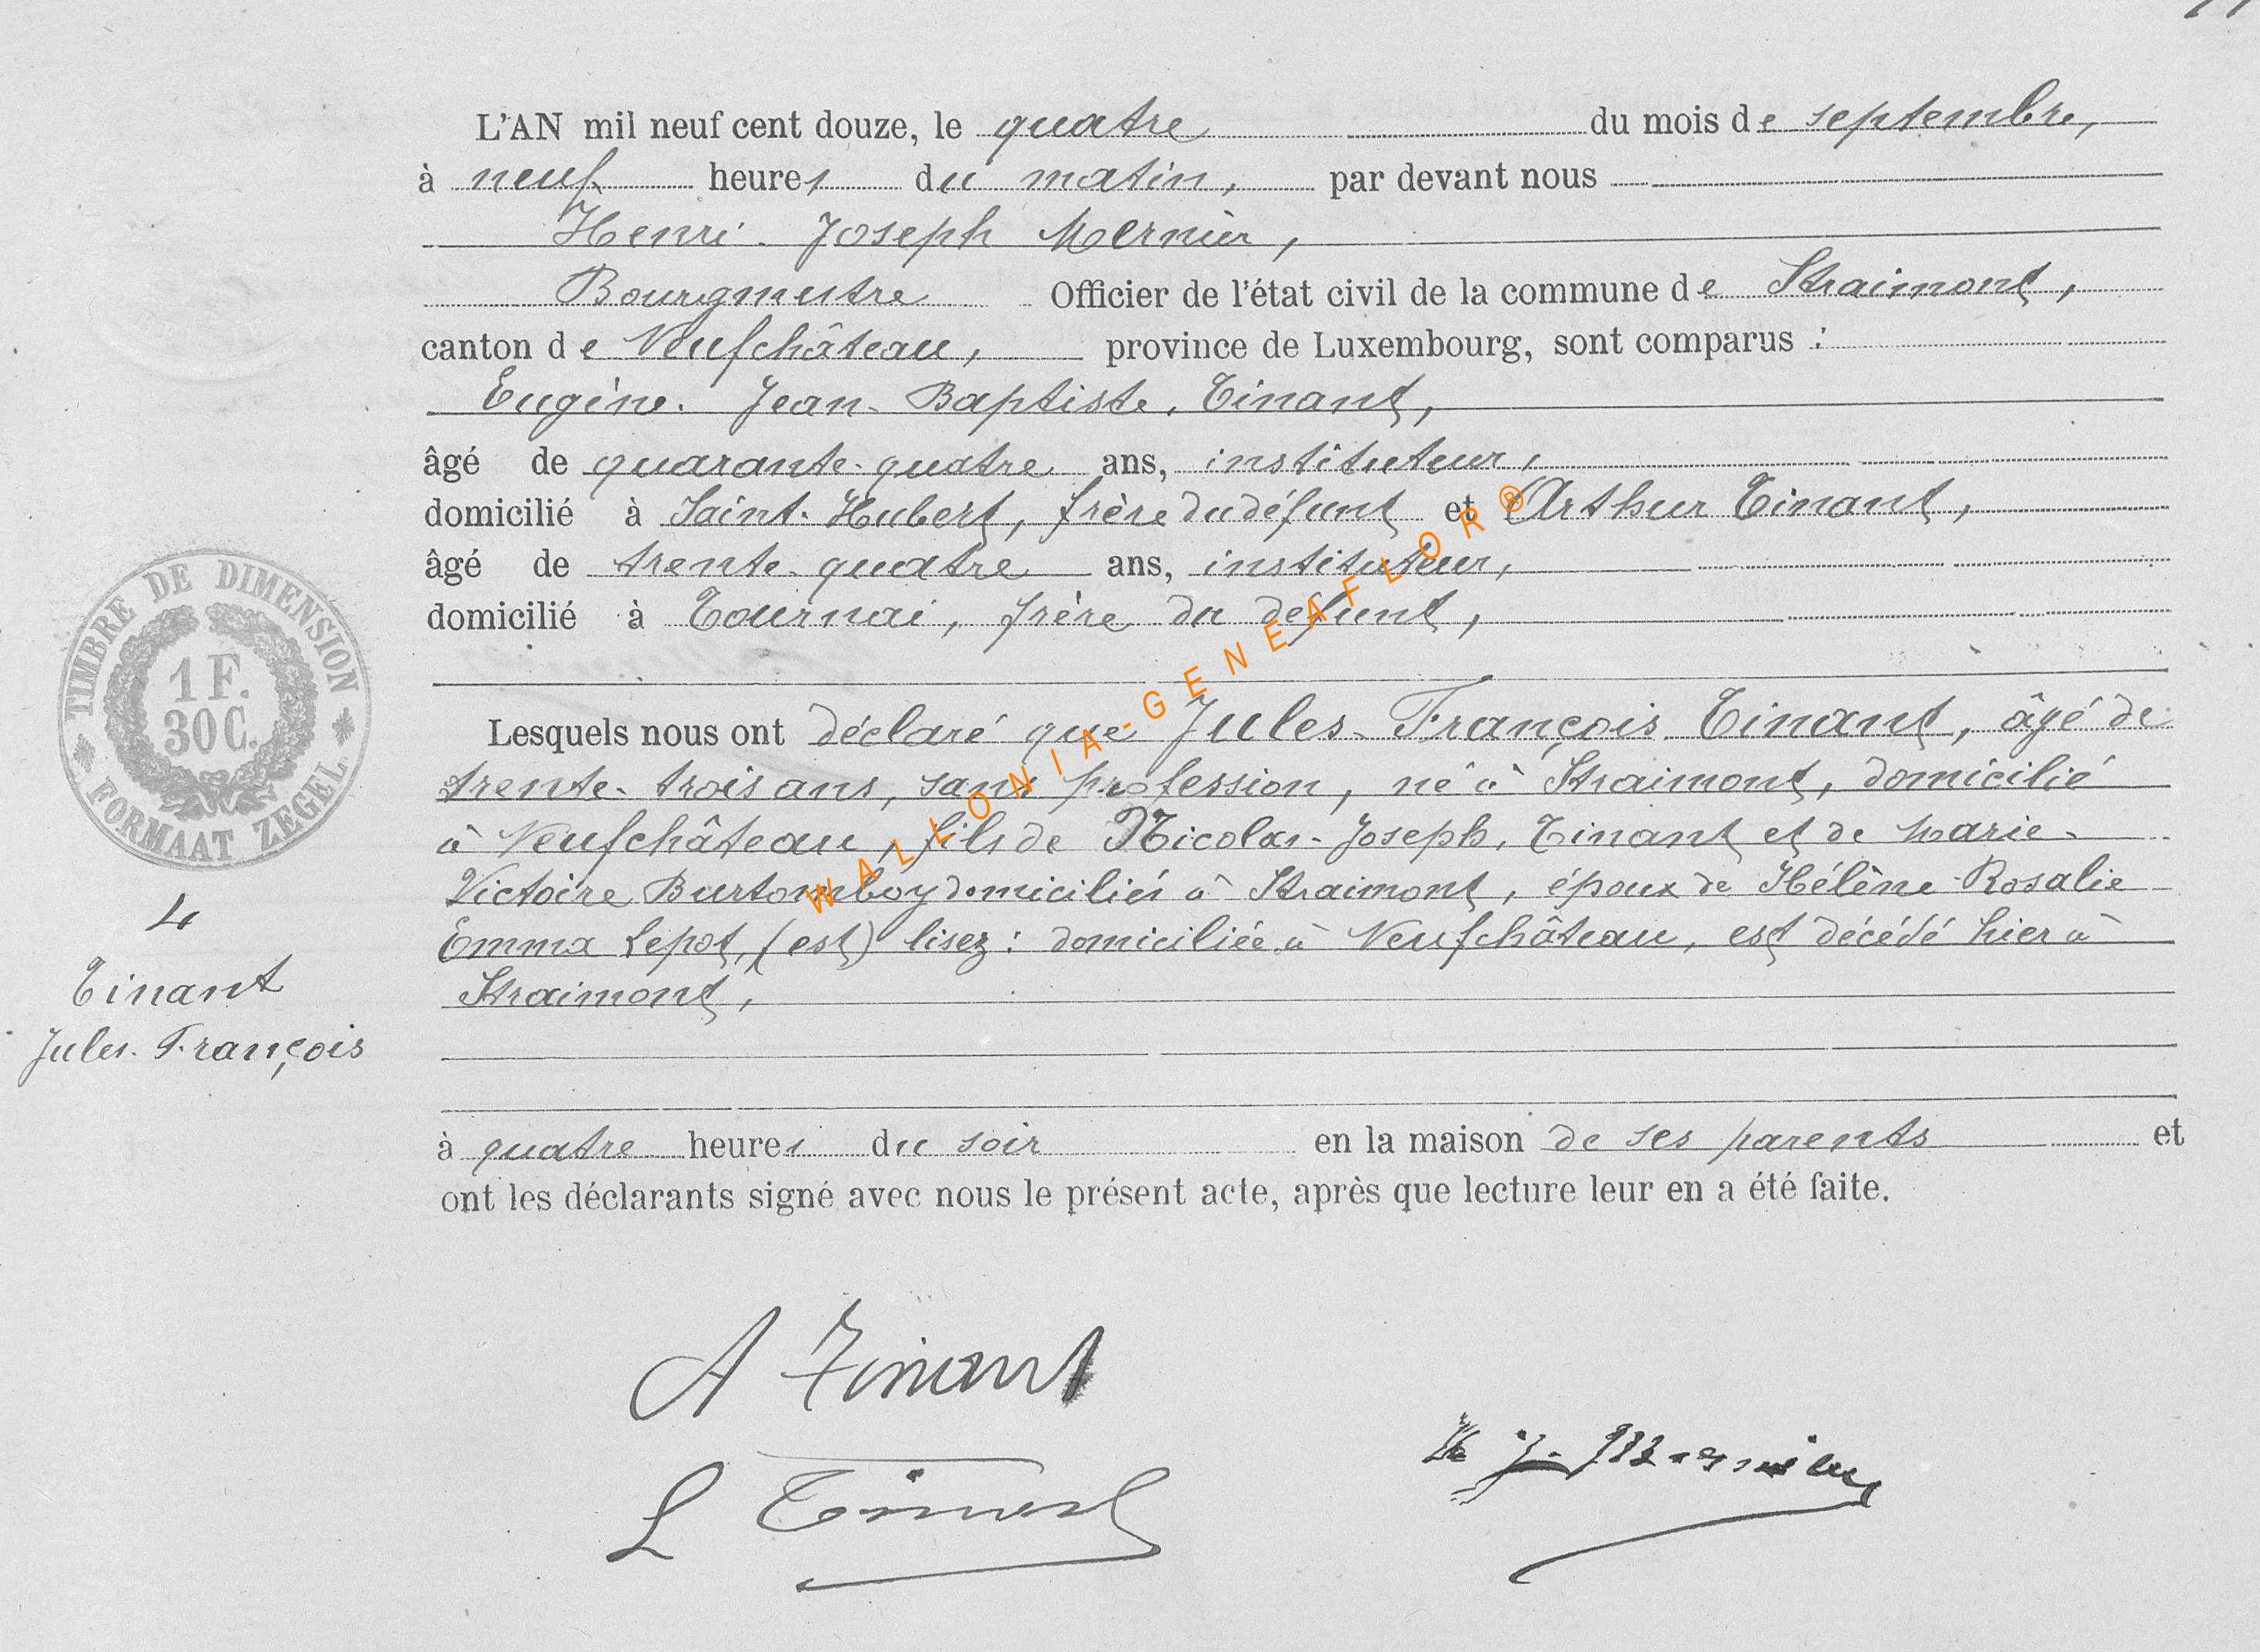 L'AN mil neuf cent douze, le quatre du mois de septembre,
à neuf heures du matin, par devant nous
Henri-Joseph Mernier,
Bourgmestre Officier de l'état civil de la commune de Straimont,
canton de Neufchâteau, province de Luxembourg, sont comparus :
Eugène-Jean-Baptiste Tinant,
âgé de quarante-quatre ans, instituteur,
domicilié à Saint-Hubert, frère du défunt et Arthur Tinant,
âgé de trente-quatre ans, instituteur,
domicilié à Tournai, frère du défunt,
Lesquels nous ont déclaré que Jules-François Tinant, âgé de
trente-trois ans, sans profession, né à Straimont, domicilié
à Neufchâteau, fils de Nicolas-Joseph Tinant et de Marie-
Victoire Burtomboy domiciliés à Straimont, époux de Hélène-Rosalie
Emma Lepot, (est) lisez : domiciliée à Neufchâteau, est décédé hier à
Straimont,
à quatre heures du soir en la maison de ses parents et
ont les déclarants signé avec nous le présent acte, après que lecture leur en a été faite.
TIMBRE DE DIMENSION
1 F.
30 C.
FORMAAT ZEGEL
4
Tinant
Jules-François
A Tinant
Tinant
H. J. Mernier
WALLONIA-GENEAFLOR®